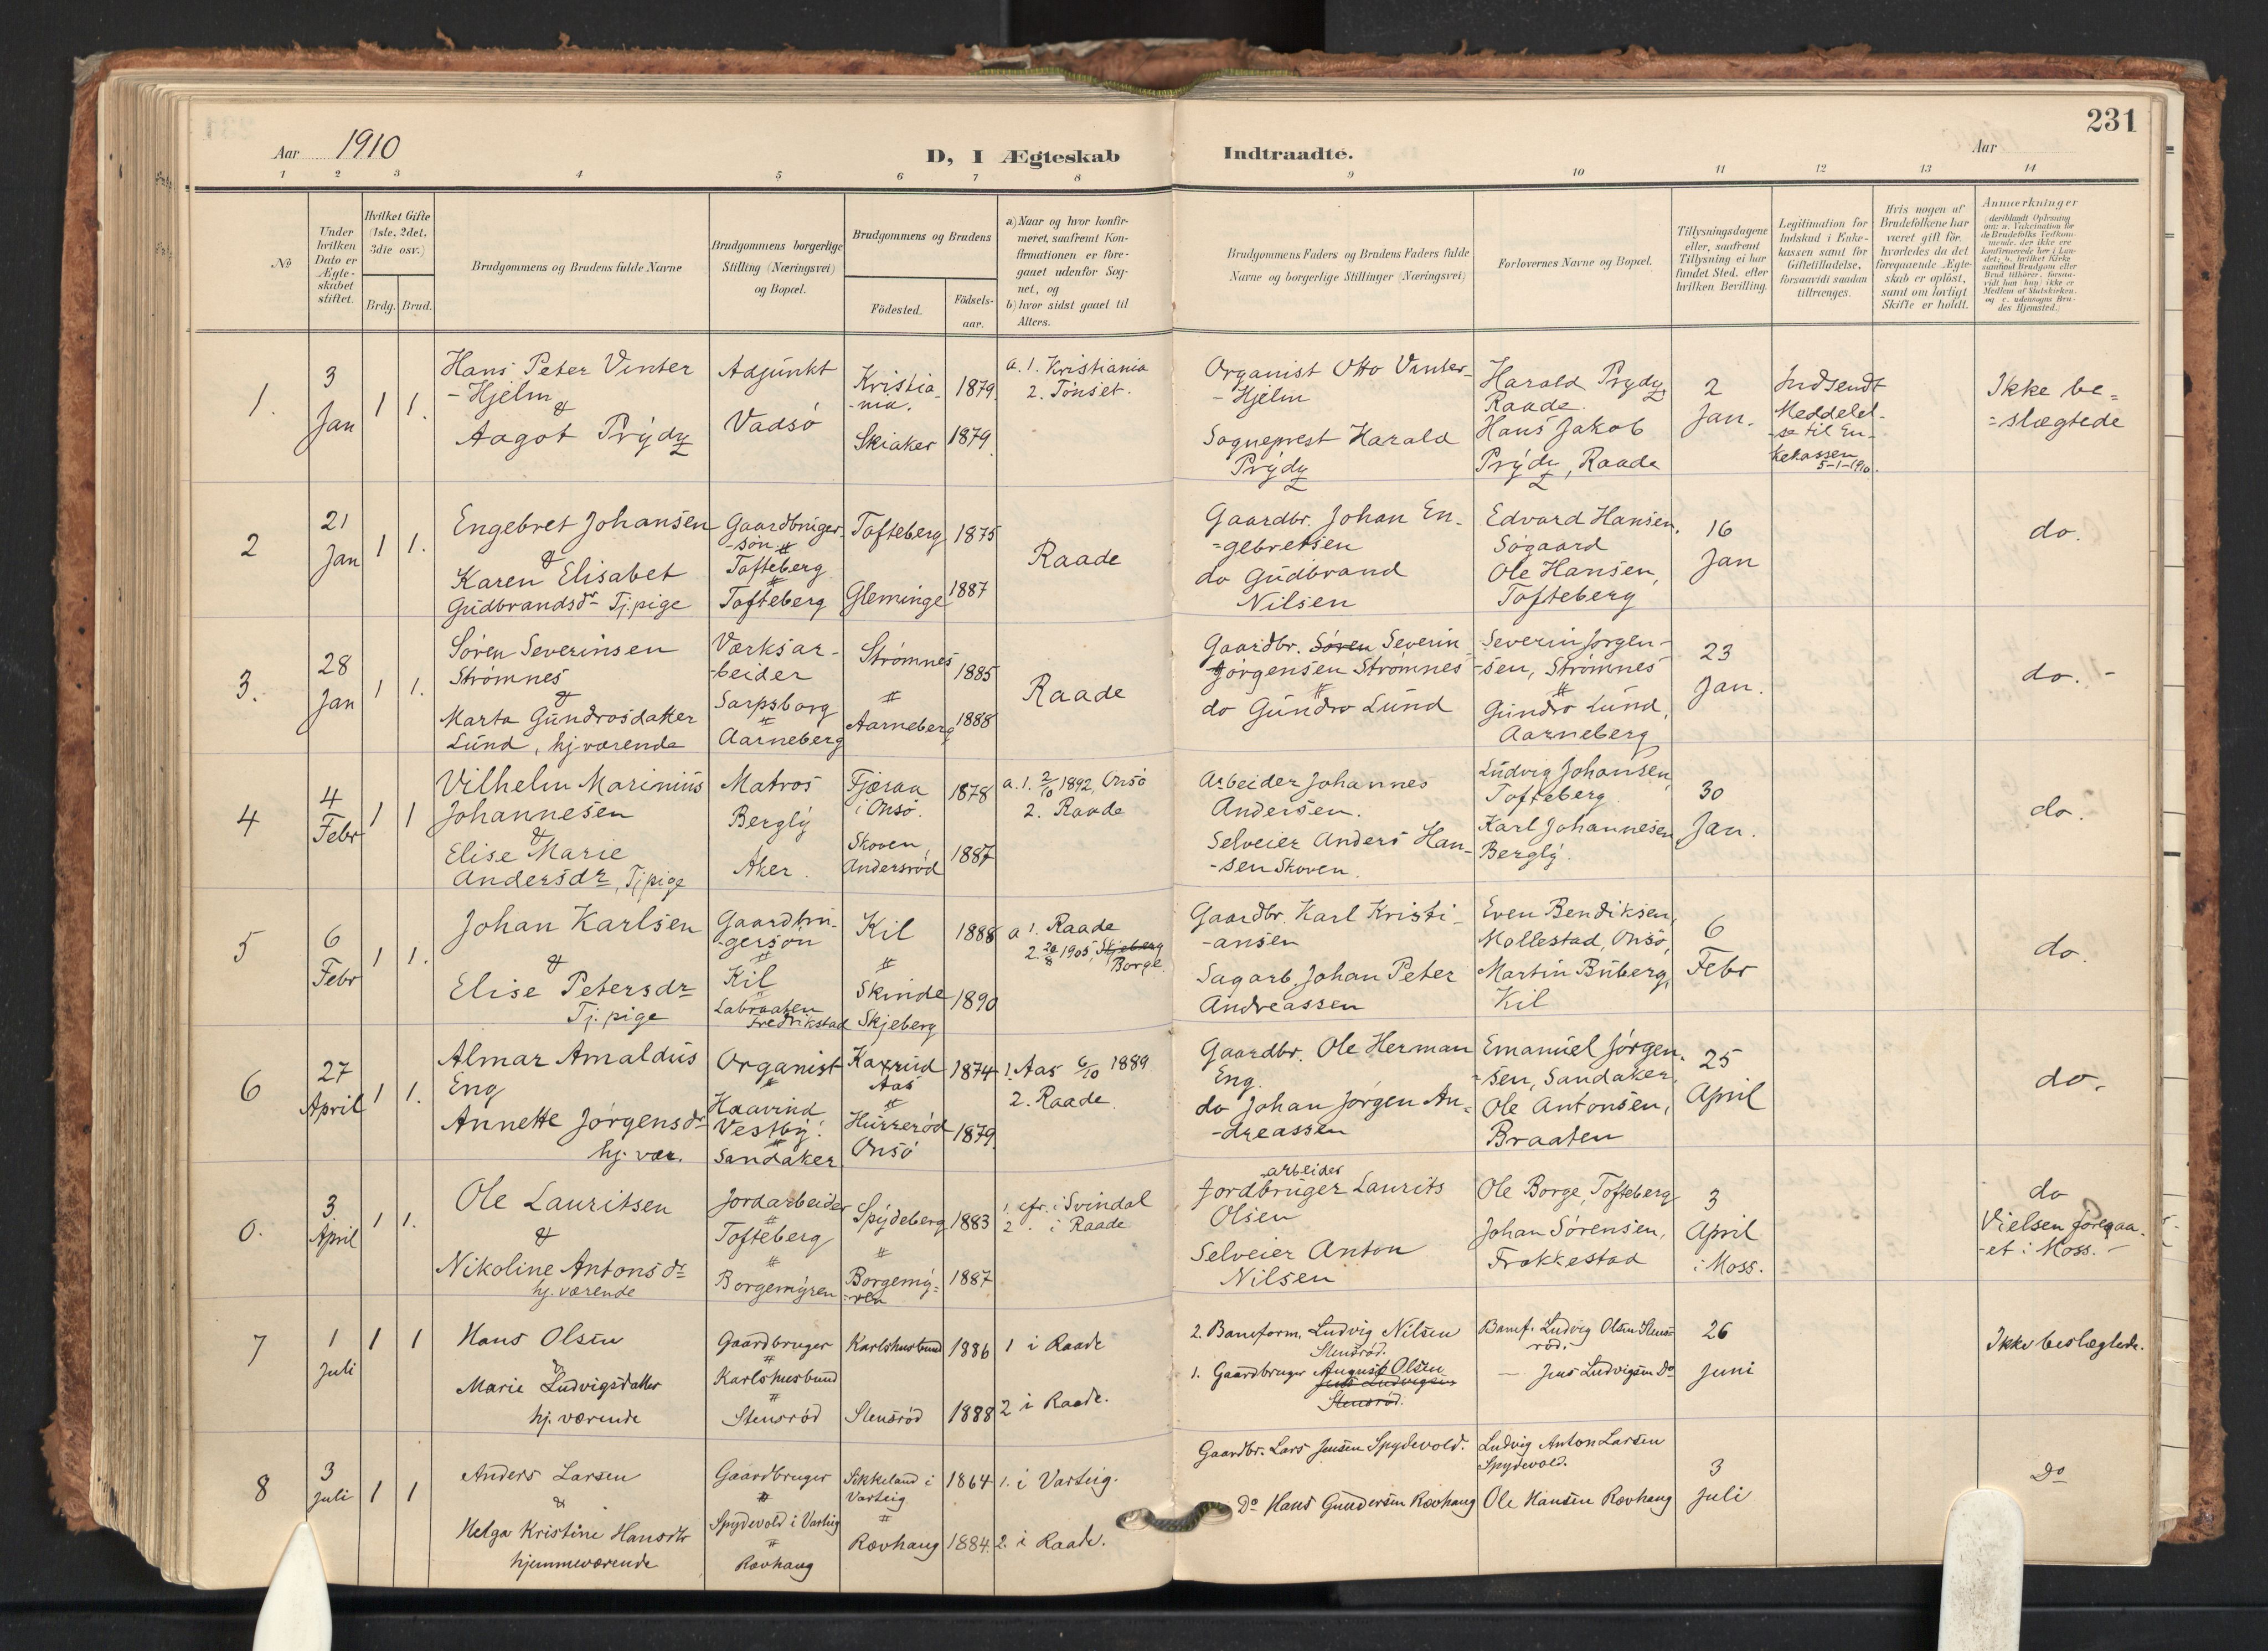 231
Aar 1910
D, I Ægteskab Indtraadte.
Aar
1 2 3 4 5 6 7 8 9 10 11 12 13 14
No
Under
hvilken
Dato er
Ægte-
skabet
stiftet.
Hvilket Gifte
(1ste, 2det,
3die osv.)
Brdg. Brud.
Brudgommens og Brudens fulde Navne
Brudgommens borgerlige
Stilling (Næringsvei)
og Bopæl.
Brudgommens og Brudens
Födested.
Födsels-
aar.
a) Naar og hvor konfir-
meret, saafremt Kon-
firmationen er fore-
gaaet udenfor Sog-
net, og
b) hvor sidst gaaet til
Alters.
Brudgommens Faders og Brudens Faders fulde
Navne og borgerlige Stillinger (Næringsvei)
Forlovernes Navne og Bopæl.
Tillysningsdagene
eller, saafremt
Tillysning ei har
fundet Sted, efter
hvilken Bevilling.
Legitimation for
Indskud i Enke-
kassen samt for
Giftetilladelse,
forsaavidt saadan
tiltrænges.
Hvis nogen af
Brudefolkene har
været gift för,
hvorledes da det
foregaaende Ægte-
skab er oplöst,
samt om lovligt
Skifte er holdt.
Anmærkninger
(deriblandt Oplysning
om: a. Vakcination for
de Brudefolks Vedkom-
mende, der ikke ere
konfirmerede her i Lan-
det; b. hvilket Kirke-
samfund Brudgom eller
Brud tilhörer, forsaa-
vidt han (hun) ikke er
Medlem af Statskirken,
og c. udensogns Bru-
des Hjemsted.)
1.
3
Jan
1 1.
Hans Peter Vinter
-Hjelm
&
Aagot Prydz
Adjunkt
Vadsö
Kristia
-nia.
Skiaker
1879.
1879.
a. 1. Kristiania
2. Tönset.
Organist Otto Vinter-
-Hjelm
Sogneprest Harald
Prydz
Harald Prydz
Raade.
Hans Jakob
Prydz, Raade
2
Jan.
Indsendt
Meddelel-
-se til En-
kekassen
5-1-1910.
Ikke be=
=slægtede
2
21
Jan
1 1.
Engebret Johansen
&
Karen Elisabet
Gudbrandsdr Tj.pige
Gaardbruger-
-sön #
Tofteberg
#
Tofteberg
Tofteberg
Gleminge
1875
1887
Raade
Gaardbr. Johan En-
=gebretsen
do Gudbrand
Nilsen
Edvard Hansen,
Sögaard
Ole Hansen,
Tofteberg
16
Jan
do.
3.
28
Jan
1 1.
Sören Severinsen
Strömnes
&
Marta Gundrosdatter
Lund, hj.værende
Værksar-
-beider
Sarpsborg
#
Aarneberg
Strömnes
#
Aarneberg
1885
1888
Raade
Gaardbr. Sören Severin
Jörgensen Strömnes
#
do Gundro Lund
Severin Jörgen-
-sen, Strömnes
#
Gundro Lund,
Aarneberg
23
Jan.
do. -
4
4
Febr
1 1
Vilhelm Marinius
Johannesen
&
Elise Marie
Andersdr, Tjpige
Matros
Bergly
Aker.
Fjæraa
i Onsö.
Skoven,
Andersröd
1878
1887
a. 1. 2/10 1892, Onsö
2. Raade
Arbeider Johannes
Andersen.
Selveier Anders Han-
-sen Skoven.
Ludvig Johansen,
Tofteberg.
Karl Johannesen
Bergly.
30
Jan.
do.
5
6
Febr
1 1.
Johan Karlsen
&
Elise Petersdr
Tj. pige
Gaardbru-
-gersön
#
Kil
#
Labraaten
Fredrikstad
Kil
#
Skinde
Skjeberg
1888
1890
a 1. Raade
2. 20/8 1905, Skjeberg
Borge.
Gaardbr. Karl Kristi-
-ansen
Sagarb. Johan Peter
Andreassen
Even Bendiksen,
Mollestad, Onsö,
Martin Buberg,
Kil
6
Febr
do.
6
27
April
1 1.
Almar Amaldus
Eng
Annette Jörgensdr
hj. vær.
Organist
#
Haavind
Vestby.
#
Sandaker
Kaxrud
Aas
#
Hurreröd
Onsö
1874
1879.
1. Aas 6/10 1889
2. Raade.
Gaardbr. Ole Herman
Eng.
do Johan Jörgen An-
-dreassen
Emanuel Jörgen-
-sen, Sandaker,
Ole Antonsen,
Braaten
25
April
do.
0.
3
April
1 1.
Ole Lauritsen
&
Nikoline Antonsdr
hj. værende
Jordarbeider
#
Tofteberg
#
Borgemyren
Spydeberg
#
Borgemy=
=ren
1883
1887
1. cfr. i Svindal
2 . i Raade
-arbeider
Jordbruger Laurits
Olsen
Selveier Anton
Nilsen
Ole Borge, Tofteberg
Johan Sörensen,
Frokkestad
3
April
i Moss.
do
Vielsen foregaa-
-et i Moss. -
7
1
Juli
1 1
Hans Olsen
&
Marie Ludvigsdatter
hj. værende
Gaardbruger
#
Karlshusbund
#
Stensröd
Karlshusbund
Stensröd
1886
1888
1 i Raade
2 i Raade.
2. Baneform. Ludvig Nilsen
Stensröd.
1. Gaardbruger August Olsen
Jens Ludvigsen
Stensröd.
Banef. Ludvig Olsen Stens=
röd.
— Jens Ludvigsen Do
26
Juni
Ikke beslægtede.
8
3
Juli
1 1
Anders Larsen
&
Helga Kristine Hansdtr
hjemmeværende
Gaardbruger
#
Spydevold i Varteig
#
Rævhaug
Sikkeland i
Varteig
#
Rævhaug
1864
1884.
1. i Varteig.
2. i Raade.
Gaardbr. Lars Jensen Spydevold.
Do Hans Gundersen Rævhaug
Ludvig Anton Larsen
Spydevold.
Ole Hansen Rævhaug
3
Juli
Do